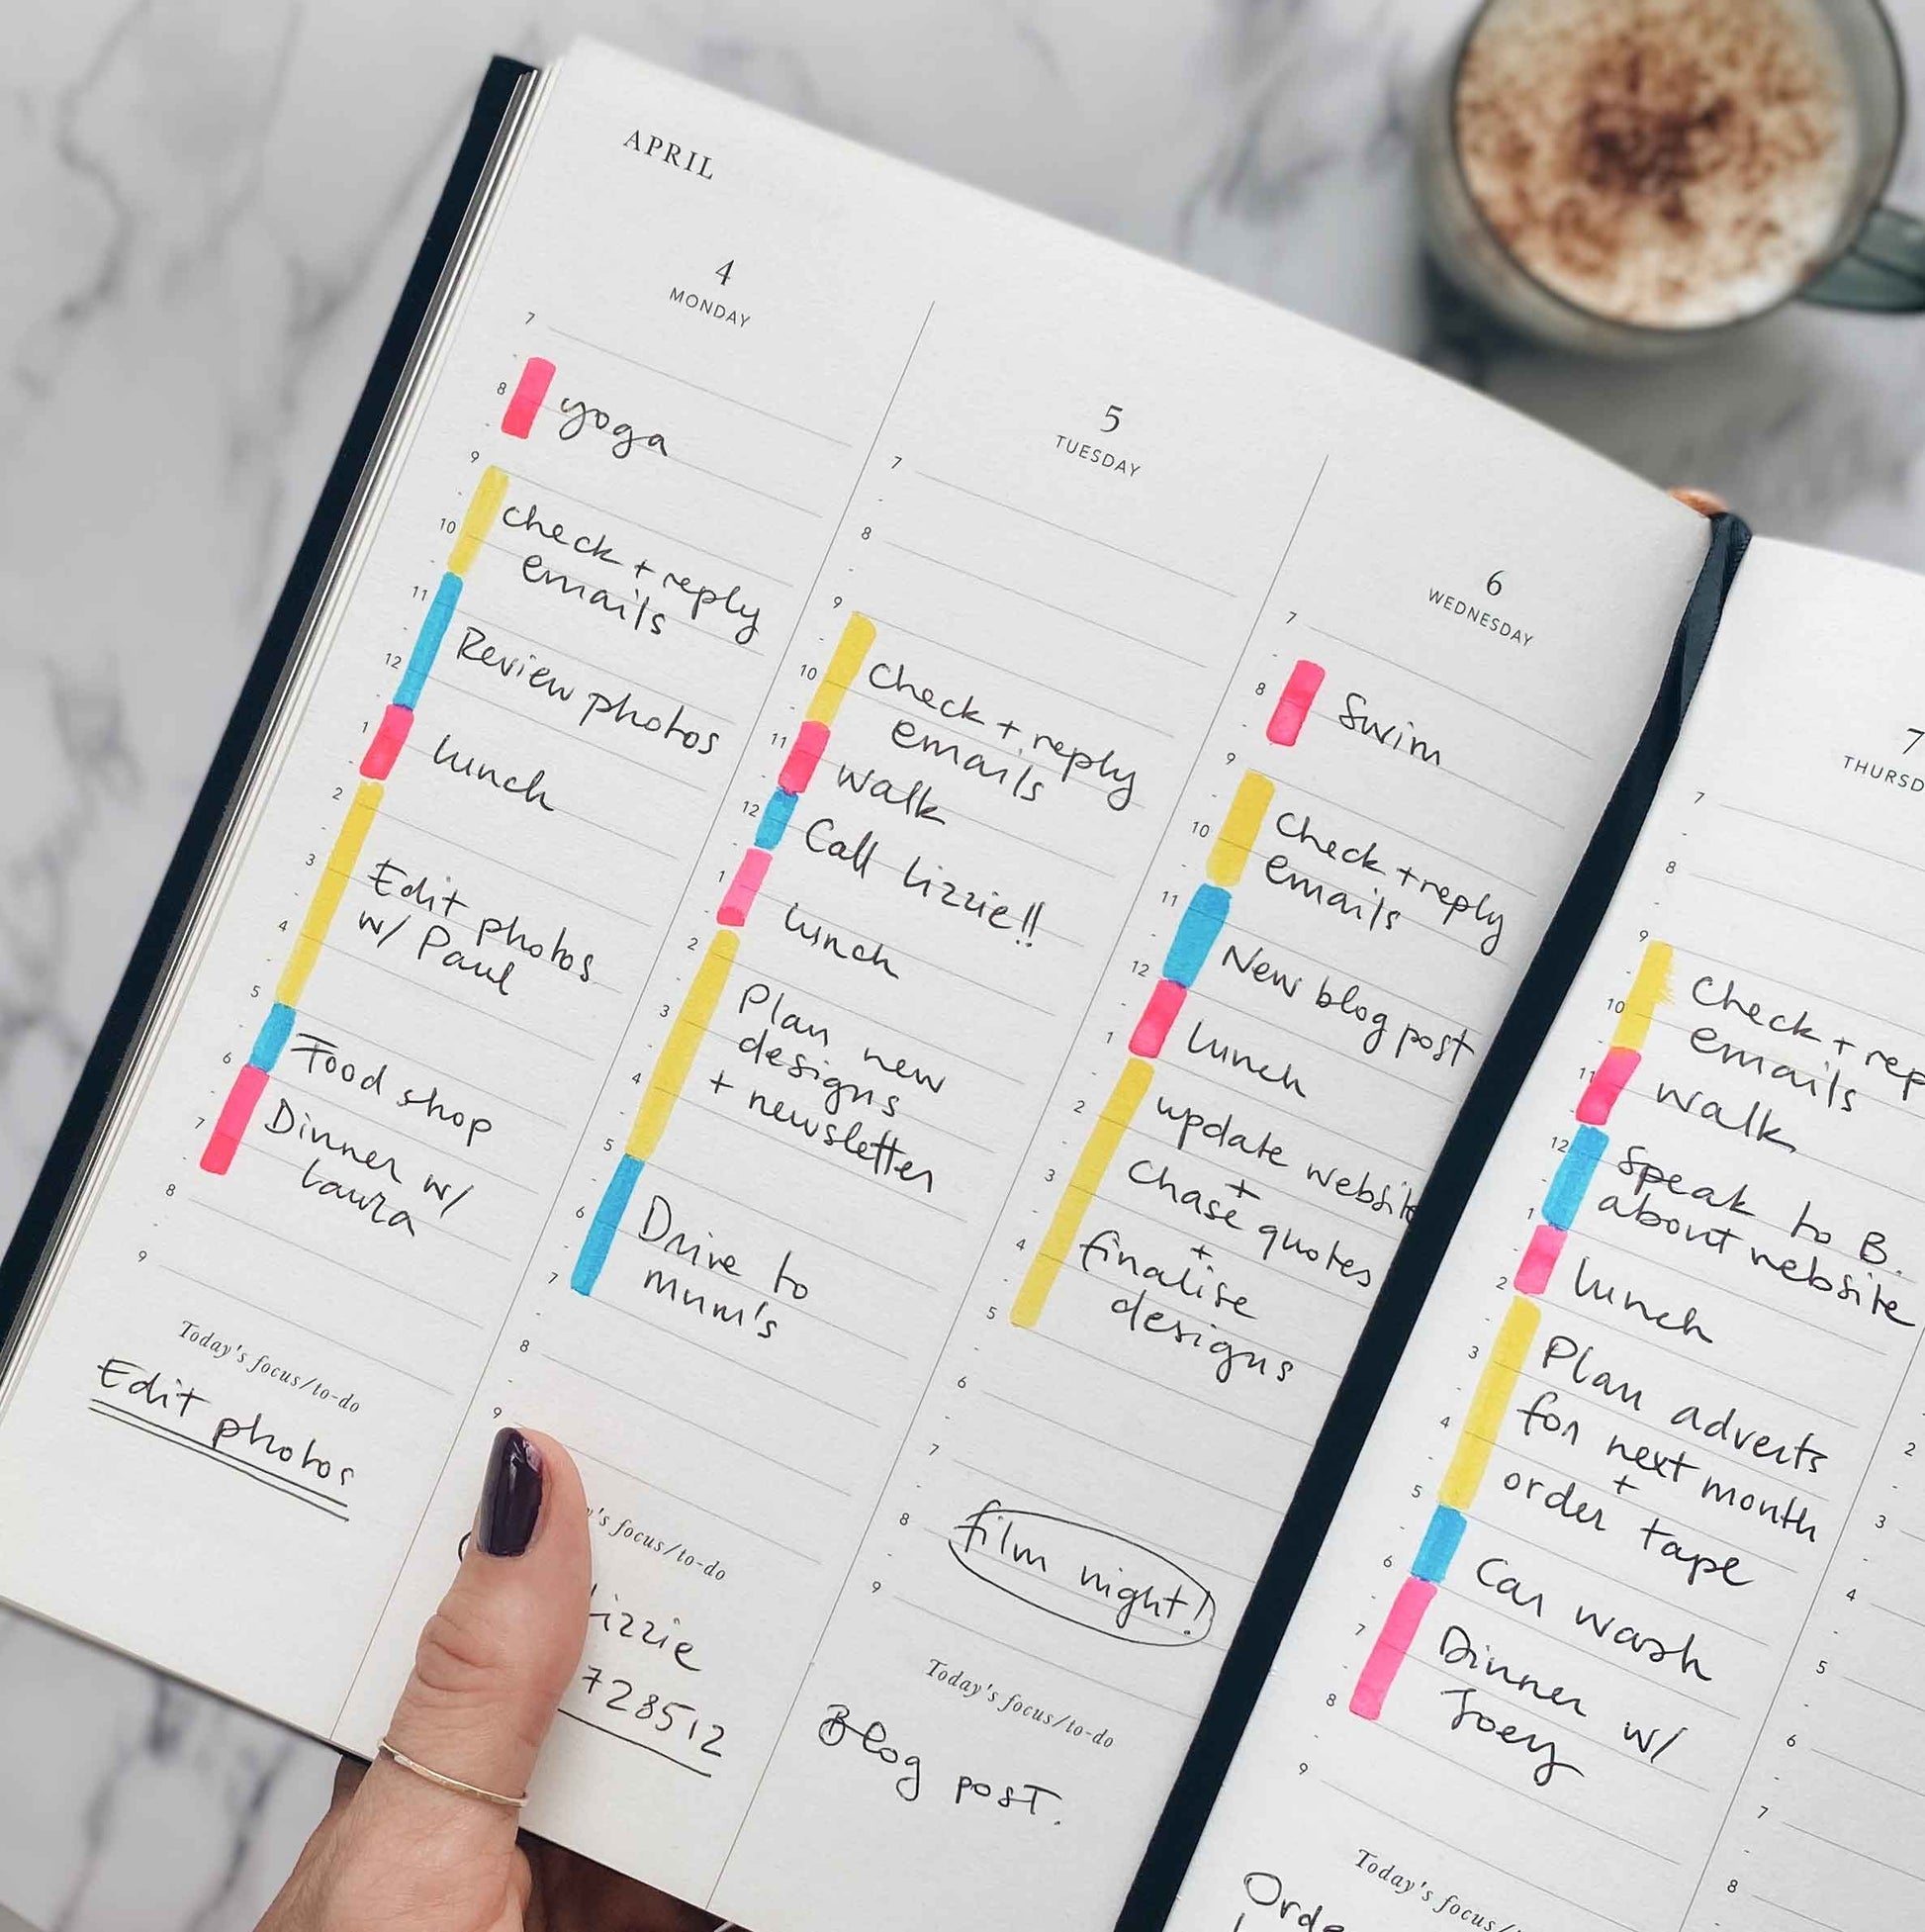 APRIL
4
MONDAY
7
8
yoga
9
check + reply
10
emails
11
Review photos
12
1
lunch
2
3
Edit photos
w/ Paul
4
5
Food shop
6
Dinner w/
Laura
7
8
9
Today's focus/to-do
Edit photos
5
TUESDAY
7
8
9
Check + reply
10
emails
11
walk
12
Call Lizzie!!
1
lunch
2
Plan new
designs
3
+ newsletter
4
5
6
Drive to
mum's
7
8
9
's focus/to-do
Lizzie
728512
6
WEDNESDAY
7
8
Swim
9
Check + reply
10
emails
11
New blog post
12
lunch
1
update website
2
+
Chase quotes
3
+
finalise
4
designs
5
6
7
8
film night!
9
Today's focus/to-do
Blog post.
7
THURSD
7
8
9
Check + rep
10
emails
11
walk
12
Speak to B.
about website
1
lunch
2
Plan adverts
3
for next month
4
+
order tape
5
Car wash
6
Dinner w/
7
Joey
8
9
Today's focus/
Orde
2
3
4
5
6
7
8